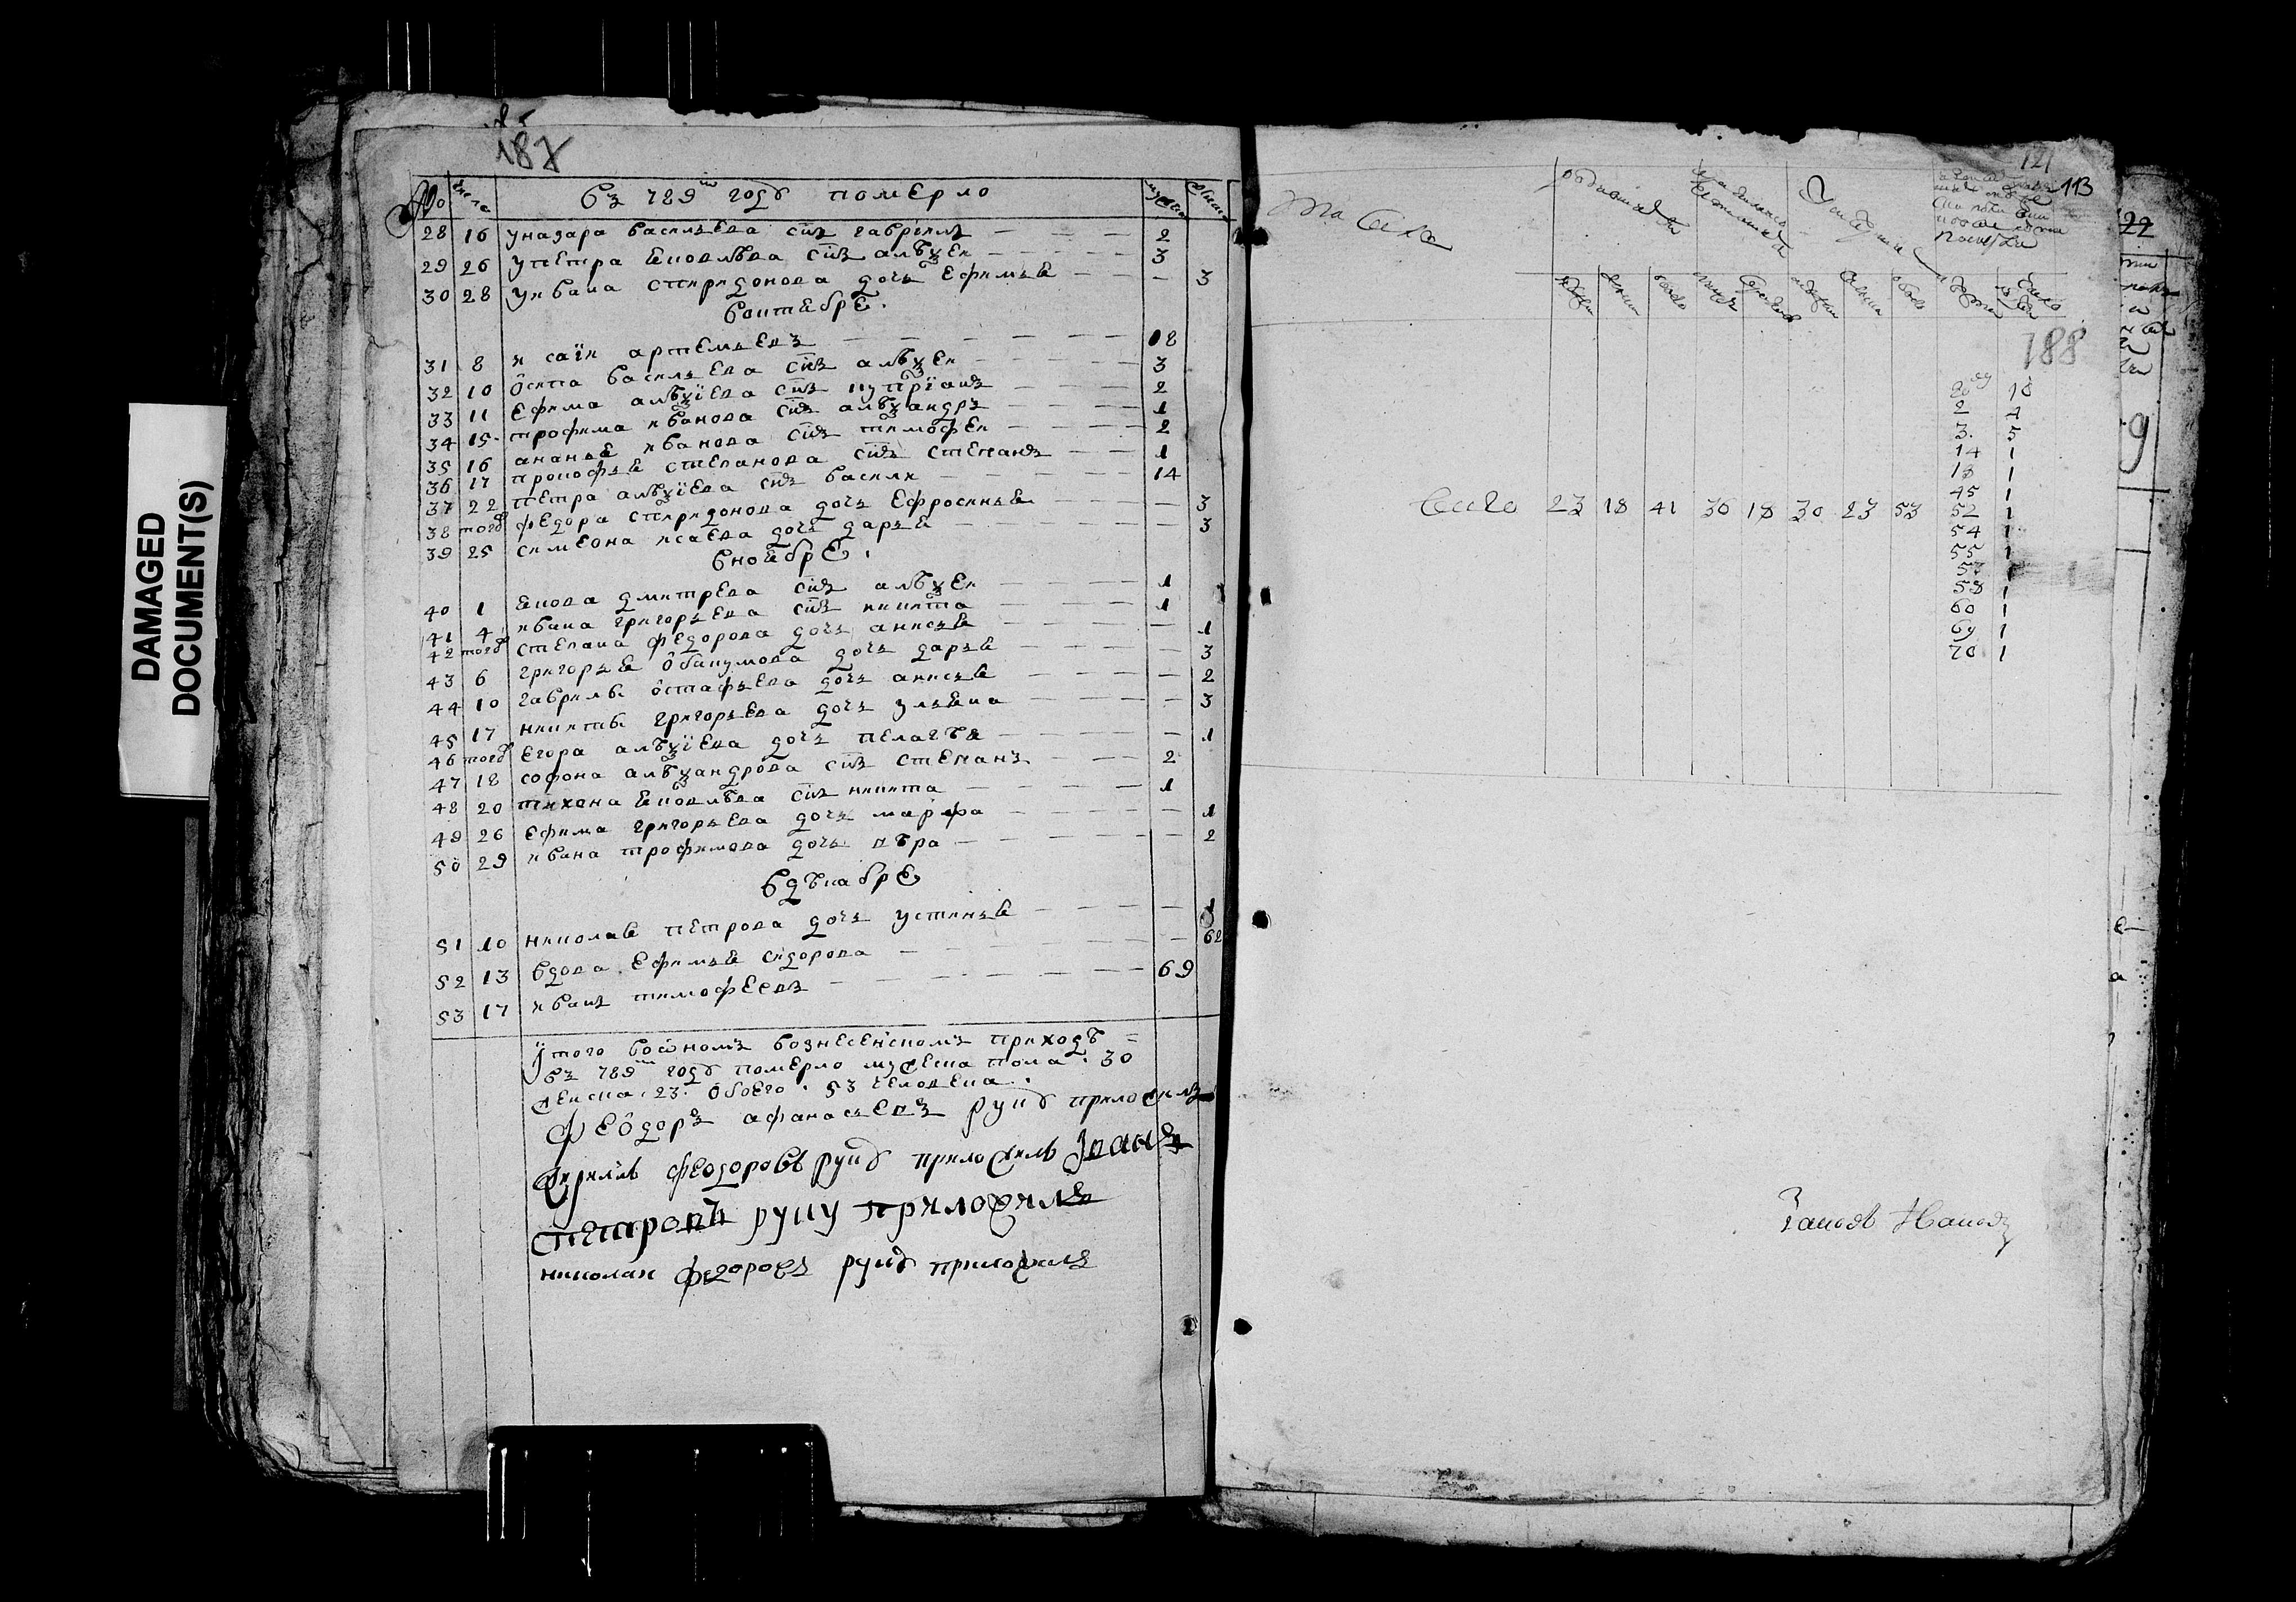 DAMAGED
DOCUMENT(S)
187
№ число въ 789м году померло мужеск женск
28 16 у назара васильева сн҃ъ гаврилъ 2
29 26 у петра яковлѣва сн҃ъ алѣѯеи 3
30 28 у ивана спиридонова дочь ефимья 3
воктябре
31 8 исаiи артемьевъ 18
32 10 осипа васильева сн҃ъ алѣѯеи 3
33 11 ефима алѣѯiева сн҃ъ куприанъ 2
34 15 трофима иванова сн҃ъ алѣѯандръ 1
35 16 ананья иванова сн҃ъ тимофеи 2
36 17 прокофья степанова сн҃ъ степанъ 1
37 22 петра алѣѯiева сн҃ъ васили 14
38 тогож федора спиридонова дочь ефросинья 3
39 25 симеона исаева дочь дарья 3
вноябре
40 1 якова дмитрева сн҃ъ алѣѯеи 1
41 4 ивана григорьева сн҃ъ никита 1
42 тогож степана федорова дочь анисья 1
43 6 григорья обакумова дочь дарья 3
44 10 гаврилы остафьева дочь анисья 2
45 17 никиты григорьева дочь ульяна 3
46 тогож егора алѣѯiева дочь пелагѣя 1
47 18 софона алѣѯандрова сн҃ъ степанъ 2
48 20 тихона яковлѣва сн҃ъ никита 1
49 26 ефима григорьева дочь марфа 1
50 29 ивана трофимова дочь вѣра 2
вдѣкабре
51 10 николая петрова дочь устинья
52 13 вдова ефимья сидорова 62
53 17 иванъ тимофеевъ 69
итого воѡномъ вознесенскомъ приходѣ
въ 789м году померло мужеска пола 30
женска 23 обоего 53 человека
феѻдоръ афанасьевъ руку приложилъ
кирилъ феодоровъ руку приложилъ iванъ
петровъ руку приложилъ
николаи федоровъ руку приложилъ
121
113
188
мужеск женск обоего
20 18
2 7
3 5
14 1
18 1
45 1
Всего 23 18 41 36 18 30 23 53 52 1
54 1
55 1
57 1
58 1
60 1
69 1
70 1
22